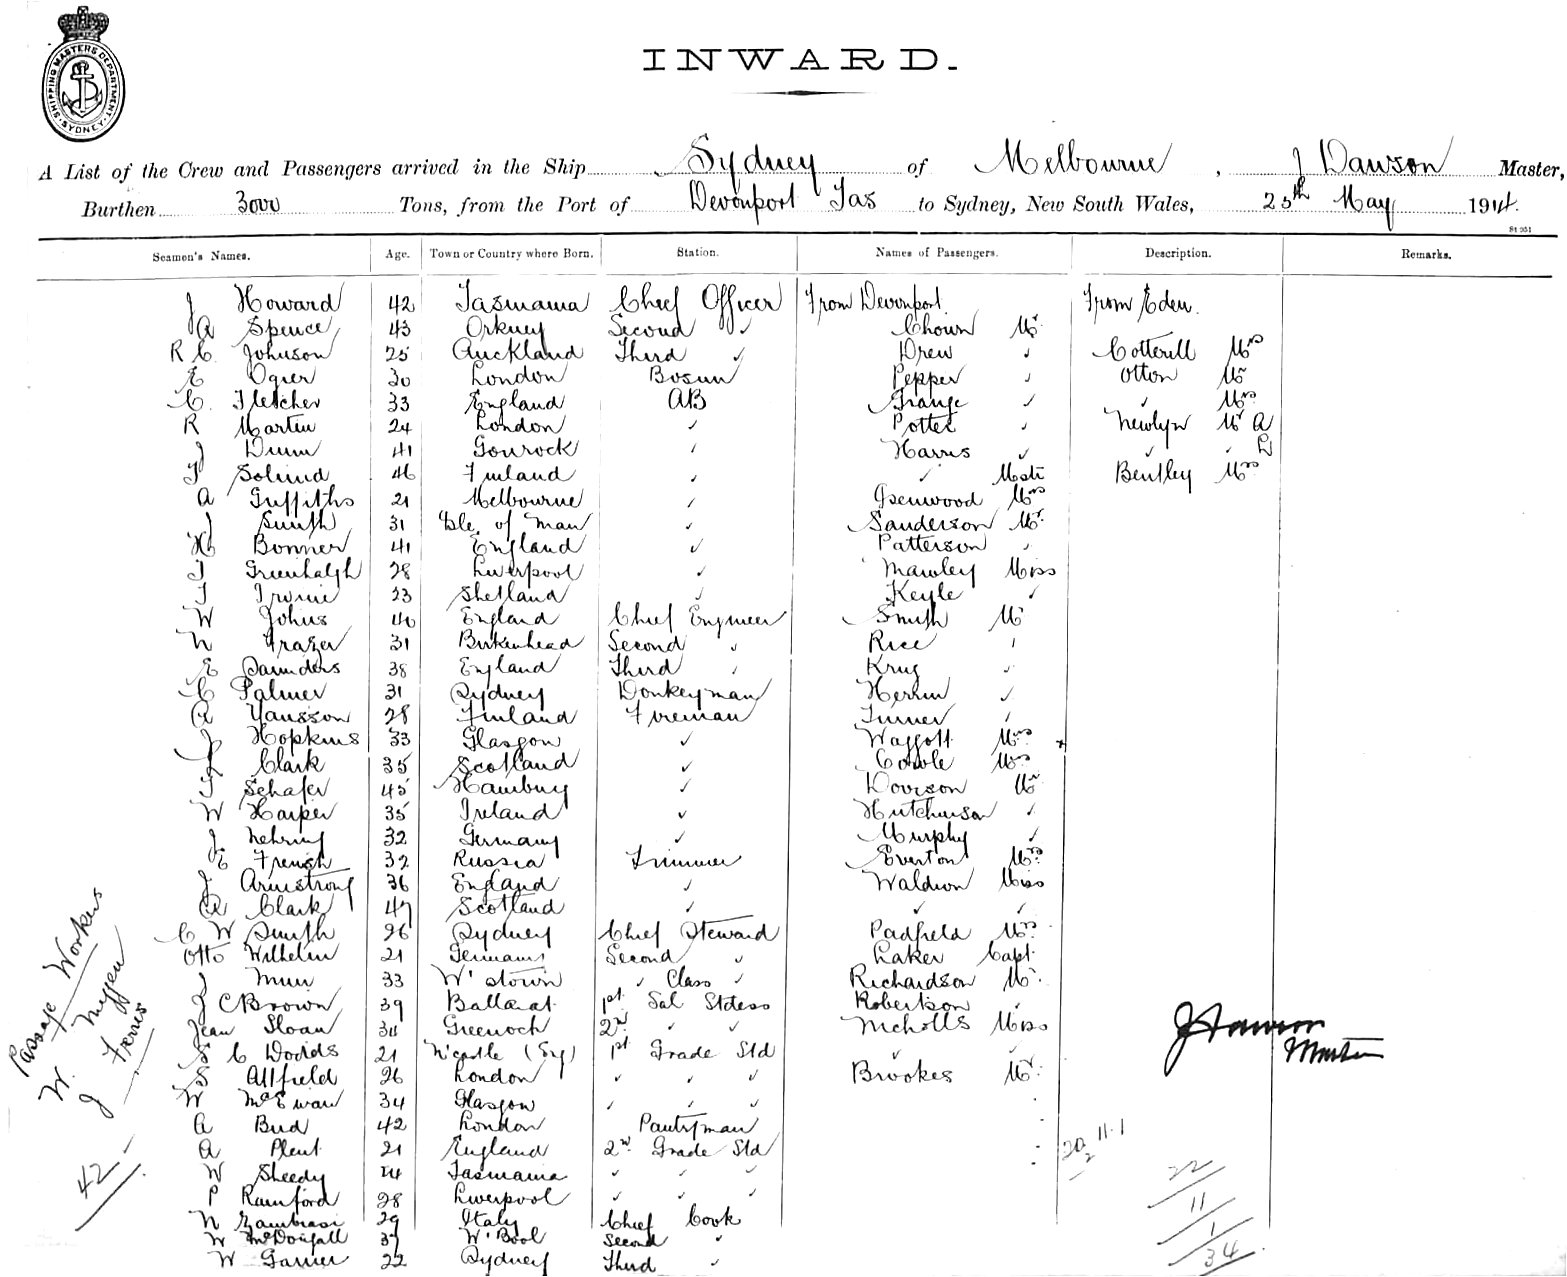 SHIPPING MASTERS DEPARTMENT SYDNEY
INWARD.
A List of the Crew and Passengers arrived in the Ship Sydney of Melbourne, J Dawson Master,
Burthen 3000 Tons, from the Port of Devonport Tas to Sydney, New South Wales, 25th May 1914.
St 351
Seamen's Names. Age. Town or Country where Born. Station. Names of Passengers. Description. Remarks.
J Howard 42 Tasmania Chief Officer From Devonport From Eden.
A Spence 43 Orkney Second ✓ Chown Mr
R C Johnson 25 Auckland Third ✓ Drew ✓ Cotterill Mrs
E Ogier 30 London Bosun Pepper ✓ Otton Mr
C. Fletcher 33 England AB Grange ✓ ✓ Mrs
R Martin 24 London ✓ Potter ✓ Newlyn Mr A
J Dunn 41 Gourock ✓ Harris ✓ ✓ ✓ L
T 46 Finland ✓ ✓ Mstr Bentley Mrs
A Griffiths 21 Melbourne ✓ Mrs
J Smith 31 Isle of Man ✓ Sanderson Mr
H Bonner 41 England ✓ Patterson ✓
J Greenhalgh 28 Liverpool ✓ Mawley Miss
J Irvine 23 Shetland ✓ Keyle ✓
W Johns 40 England Chief Engineer Smith Mr
W Frazer 31 Birkenhead Second ✓ Rice ✓
E Saunders 38 England Third ✓ Krug ✓
C Palmer 31 Sydney Donkeyman Herrin ✓
A Yansson 28 Finland Fireman Turner ✓
J Hopkins 33 Glasgow ✓ Waggott Mrs
J Clark 35 Scotland ✓ Mrs
J Schafer 45 Hamburg ✓ Mr
W Harper 35 Ireland ✓ Hutchinson ✓
J Nehring 32 Germany ✓ Murphy ✓
E French 32 Russia Trimmer Everton Mrs
J Armstrong 36 England ✓ Waldron Miss
A Clark 47 Scotland ✓ ✓ ✓
C W Smith 26 Sydney Chief Steward Padfield Mrs
Otto Wilhelm 21 Germany Second ✓ Laker Capt
J Muir 33 W'stown ✓ Class ✓ Richardson Mr
J C Brown 39 Ballarat 1st Sal Stdess Robertson ✓
Jean Sloan 34 Greenock 2nd ✓ ✓ Nicholls Miss
S C Dodds 21 N'castle (Eng) 1st Grade Std ✓ ✓
S Allfield 26 London ✓ ✓ ✓ Brookes Mr
W McEwan 34 Glasgow ✓ ✓ ✓
A Bird 42 London Pantryman
A Plent 21 England 2nd Grade Std
W Sheedy 24 Tasmania ✓ ✓ ✓
P Rainford 28 Liverpool ✓ ✓ ✓
N Zambrasi 29 Italy Chief Cook
W McDougall 37 W'Bool Second ✓
W Garner 22 Sydney Third ✓
Passage Workers
W.
J Ferris
42
J Dawson
Master
22
11
1
34